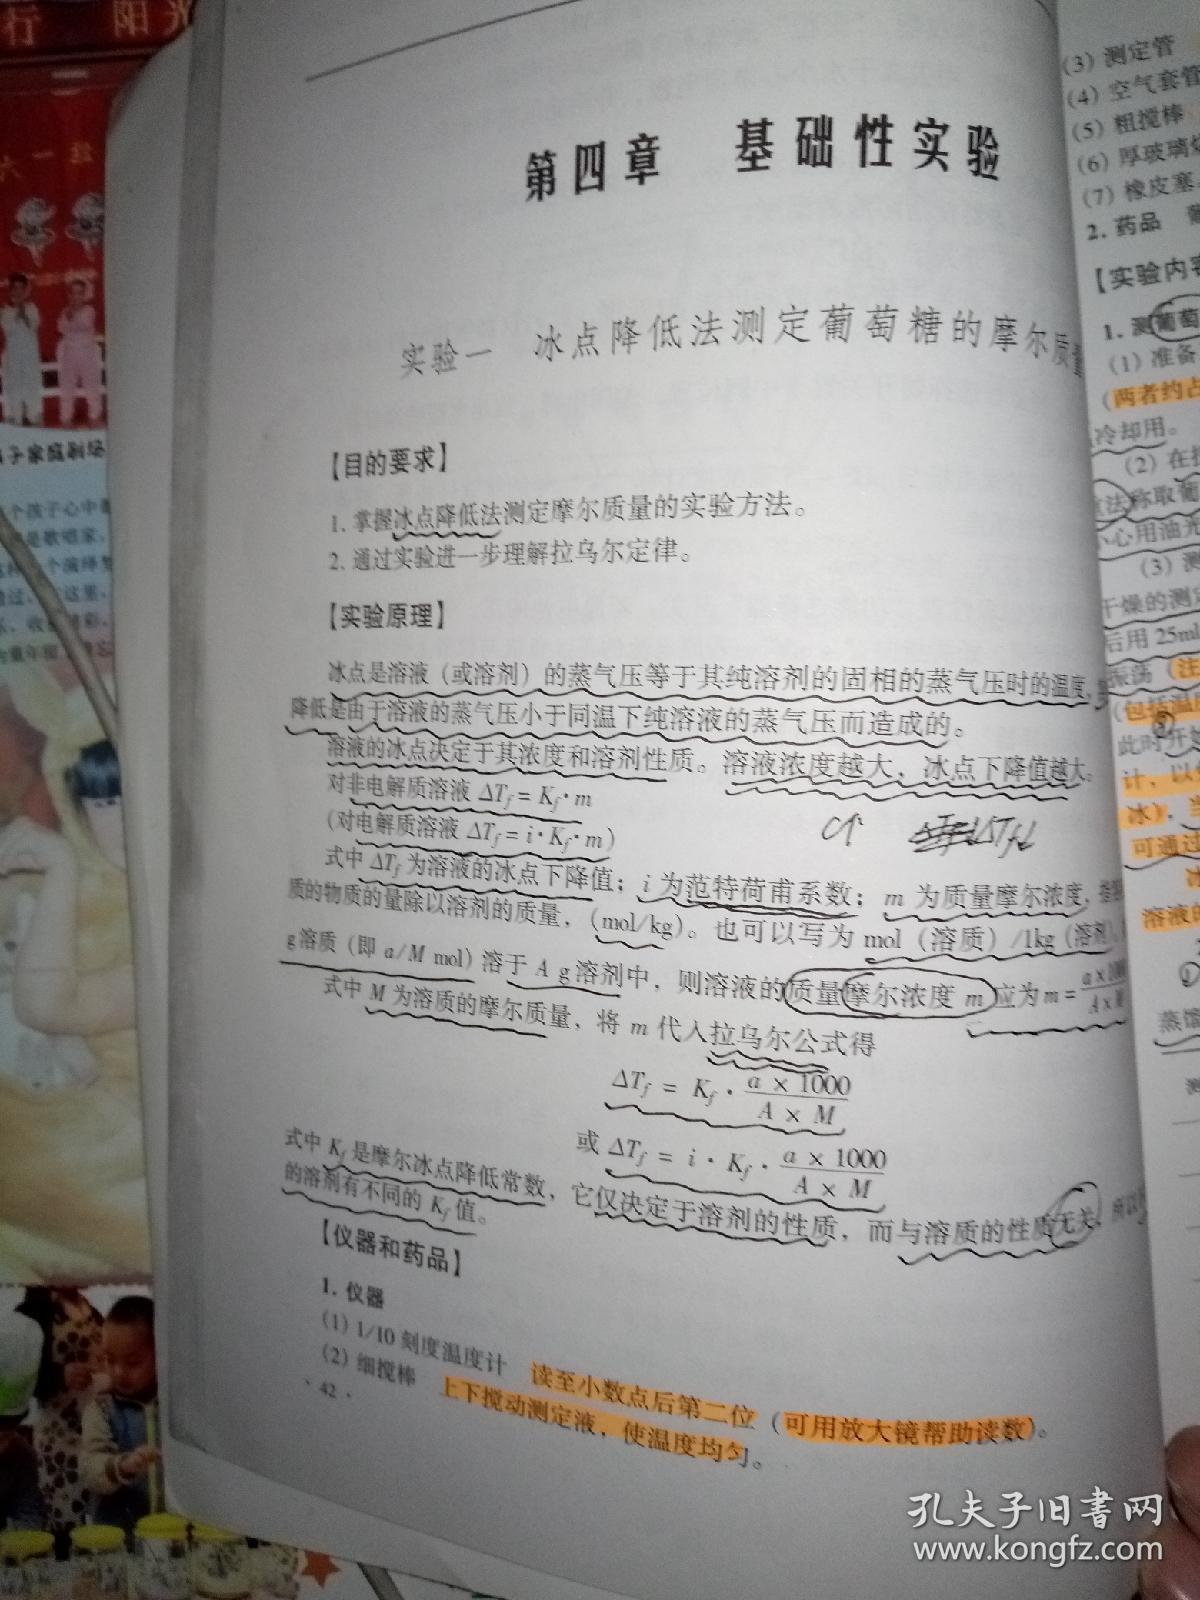 行 阳光
第四章 基础性实验
实验一 冰点降低法测定葡萄糖的摩尔质量
【目的要求】
1. 掌握冰点降低法测定摩尔质量的实验方法。
2. 通过实验进一步理解拉乌尔定律。
【实验原理】
冰点是溶液（或溶剂）的蒸气压等于其纯溶剂的固相的蒸气压时的温度，
降低是由于溶液的蒸气压小于同温下纯溶液的蒸气压而造成的。
溶液的冰点决定于其浓度和溶剂性质。溶液浓度越大，冰点下降值越大。
对非电解质溶液 ΔTf = Kf·m
(对电解质溶液 ΔTf = i·Kf·m)
C↑ ΔTf↓
式中 ΔTf 为溶液的冰点下降值；i 为范特荷甫系数；m 为质量摩尔浓度，
质的物质的量除以溶剂的质量，(mol/kg)。也可以写为 mol（溶质）/1kg（溶剂）
g 溶质（即 a/M mol）溶于 A g 溶剂中，则溶液的质量摩尔浓度 m 应为 m = a×1000/A×M
式中 M 为溶质的摩尔质量，将 m 代入拉乌尔公式得
ΔTf = Kf · a × 1000 / A × M
或 ΔTf = i · Kf · a × 1000 / A × M
式中 Kf 是摩尔冰点降低常数，它仅决定于溶剂的性质，而与溶质的性质无关，所以
的溶剂有不同的 Kf 值。
【仪器和药品】
1. 仪器
(1) 1/10 刻度温度计 读至小数点后第二位（可用放大镜帮助读数）。
(2) 细搅棒 上下搅动测定液，使温度均匀。
· 42 ·
(3) 测定管
(4) 空气套管
(5) 粗搅棒
(6) 厚玻璃
(7) 橡皮塞
2. 药品
【实验内容
1. 测葡萄
(1) 准备
(两者约占
冷却用。
(2) 在
法称取葡
小心用油光
(3) 测
干燥的测定
后用 25ml
振荡（注
(包括温
此时开始
计，以
冰)，当
可通过
溶液的
蒸馏
子家庭剧场
个孩子心中
是歌唱家，
孔夫子旧书网
www.kongfz.com